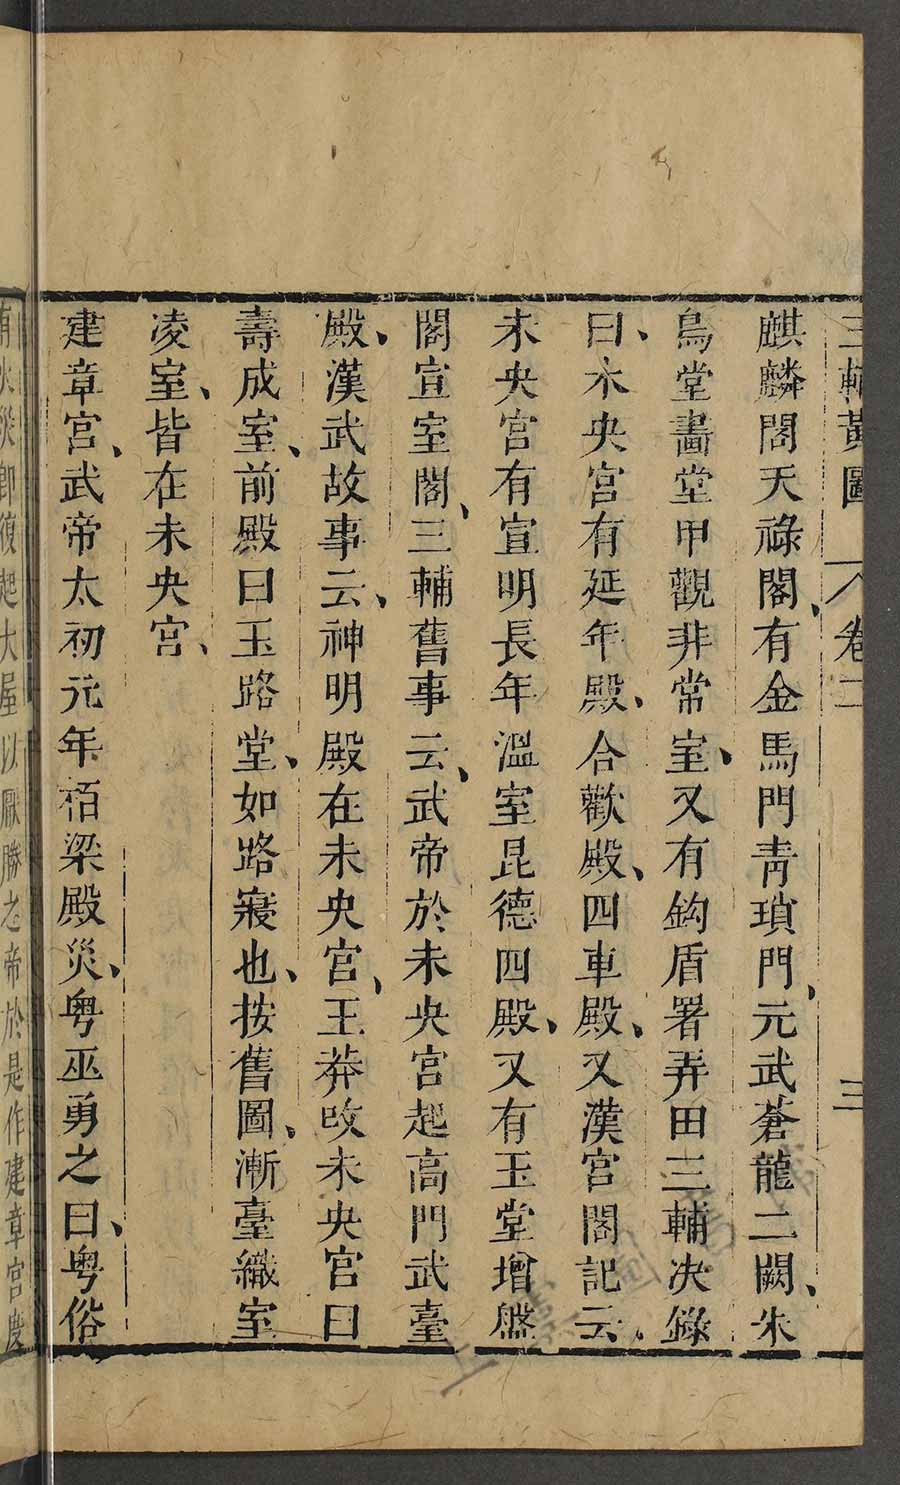 三輔黃圖 卷二 三
麒麟閣天祿閣、有金馬門青瑣門、元武蒼龍二闕、朱
鳥堂畫堂甲觀非常室、又有鈎盾署弄田三輔决錄
曰、未央宮有延年殿、合歡殿、四車殿、又漢宮閣記云、
未央宮有宣明長年溫室昆德四殿、又有玉堂增盤
閣宣室閣、三輔舊事云、武帝於未央宮起高門武臺
殿、漢武故事云、神明殿在未央宮、王莽改未央宮曰
壽成室、前殿曰玉路堂、如路寢也、按舊圖、漸臺織室
凌室、皆在未央宮、
建章宮、武帝太初元年栢梁殿災、粤巫勇之曰、粤俗
有火災卽復起大屋以厭勝之帝於是作建章宮度